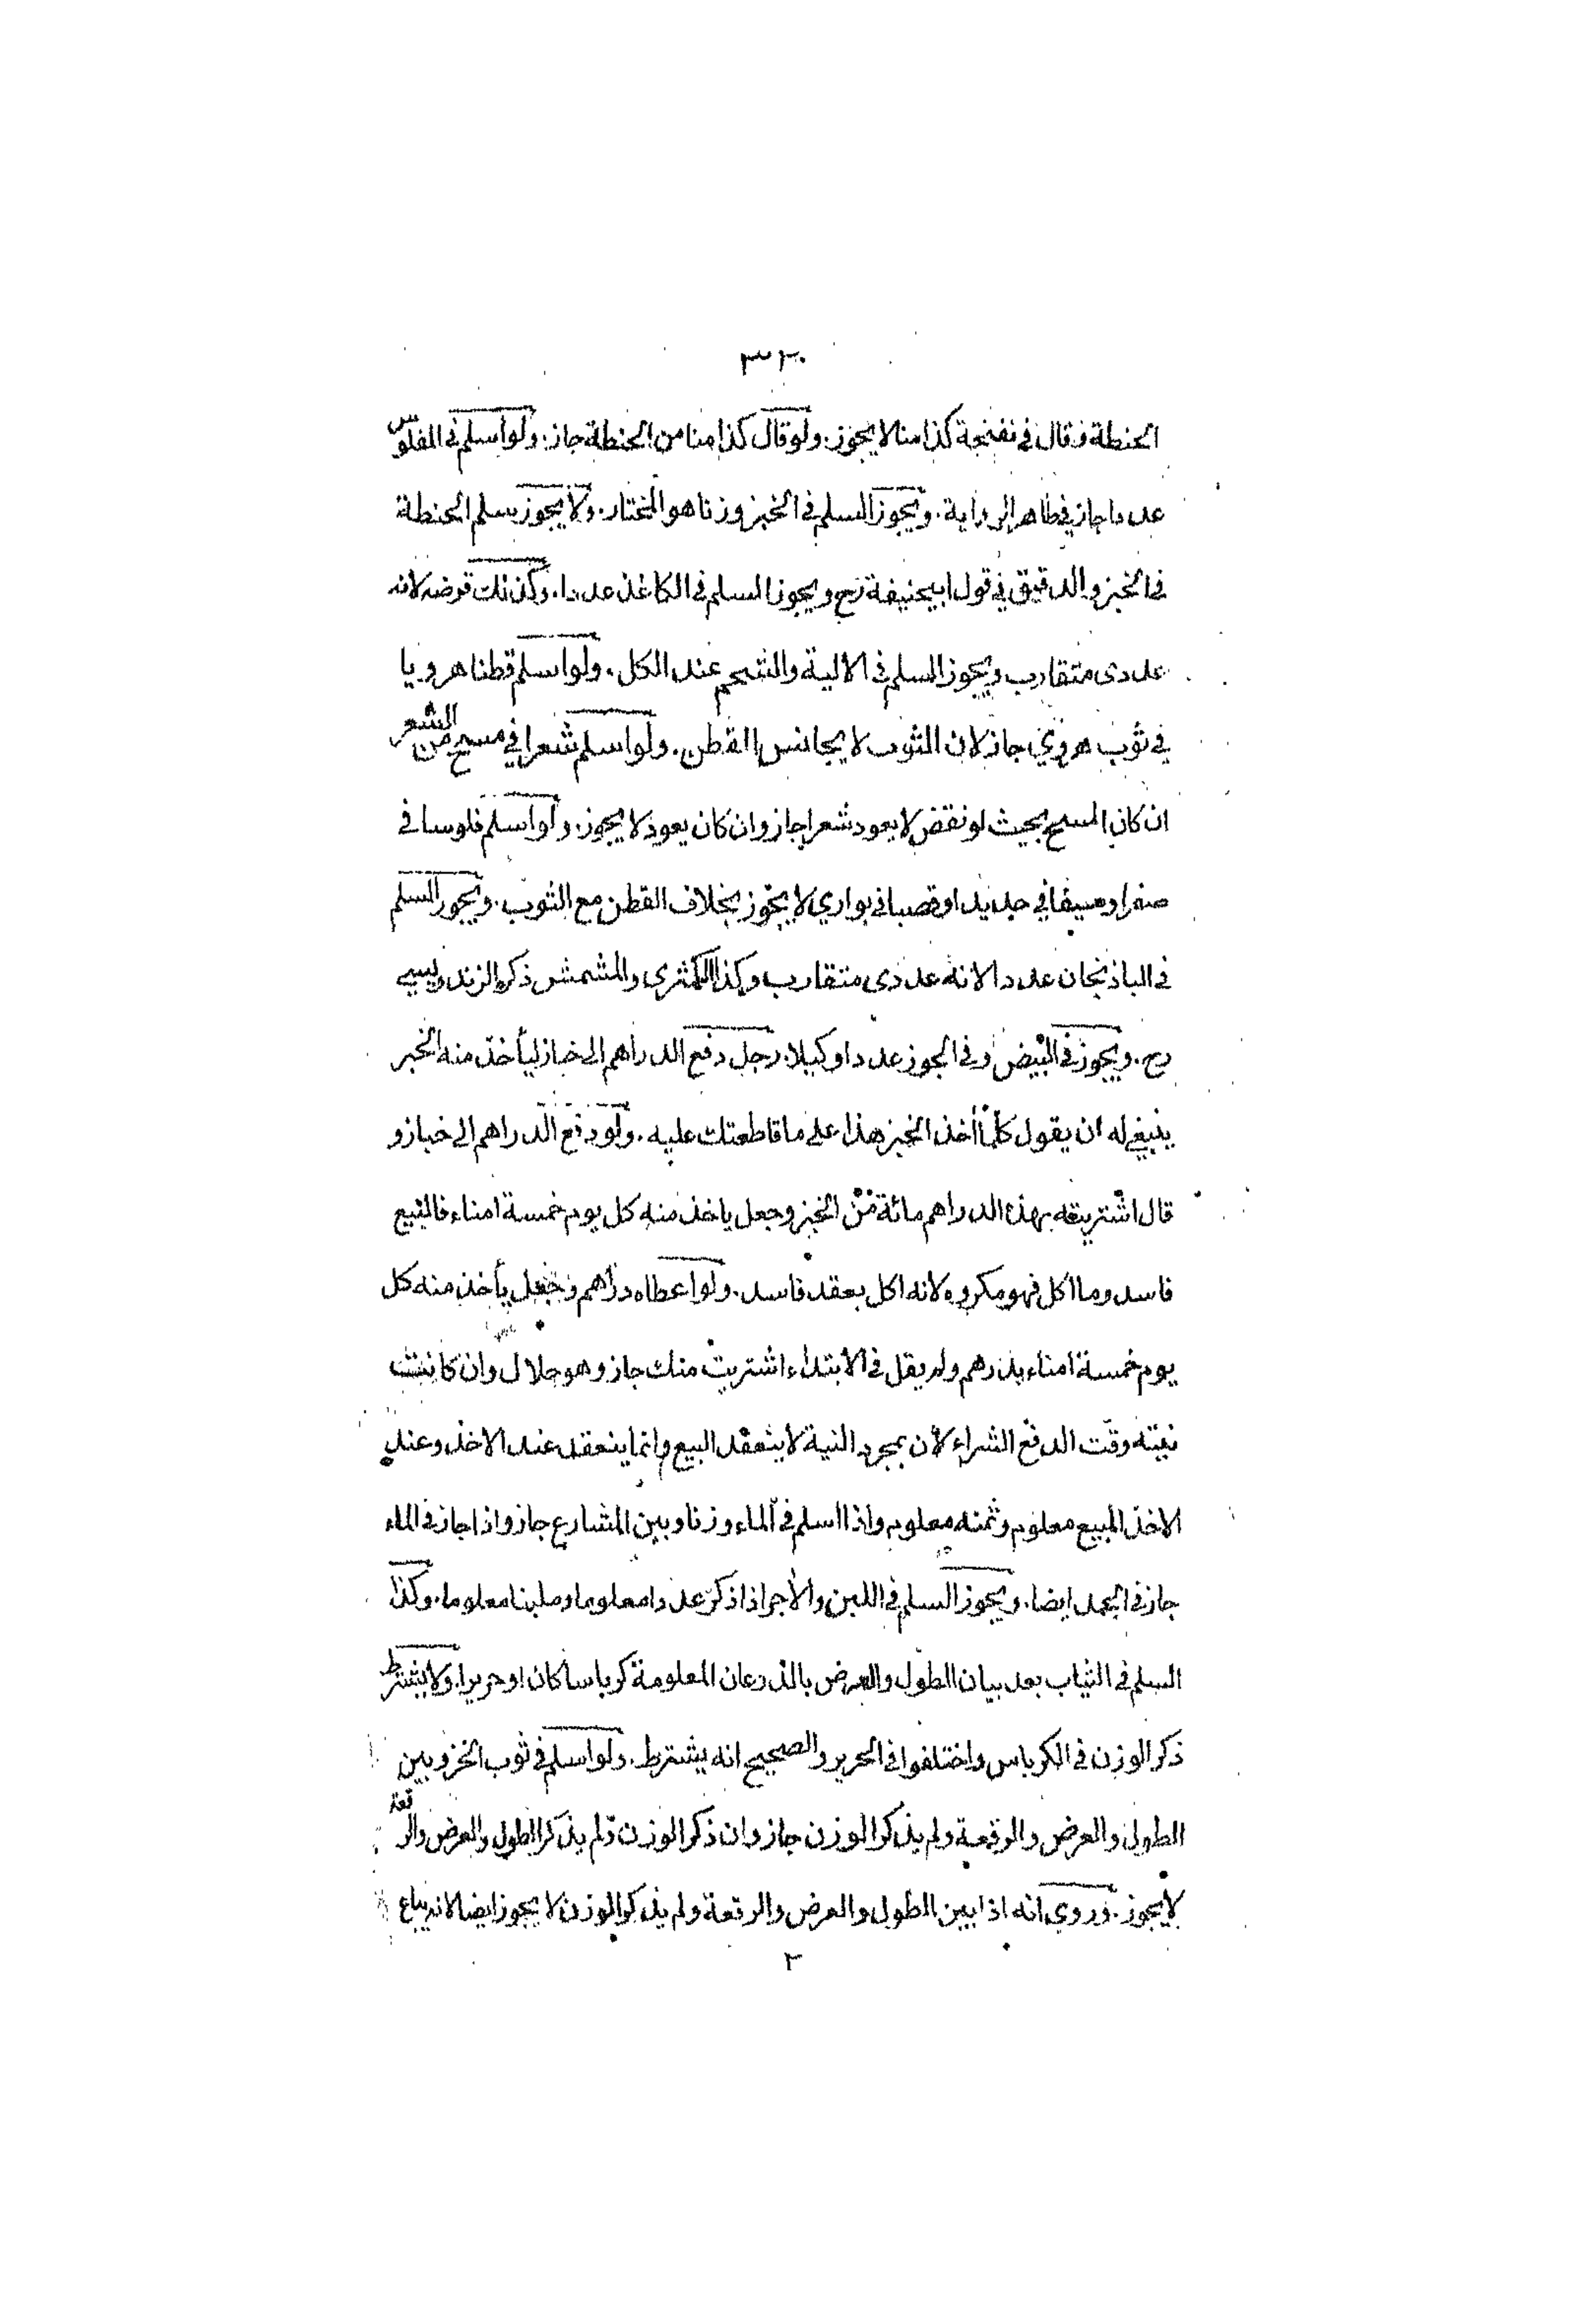 ٣٢٠
الحنطة وقال في نفنجة كذا منا لا يجوز. ولو قال كذا منا من الحنطة جاز. ولو اسلم في الفلوس
عددا جاز في ظاهر الرواية. ويجوز السلم في الخبز وزنا هو المختار. ولا يجوز سلم الحنطة
في الخبز والدقيق في قول ابيحنيفة رح ويجوز السلم في الكاغذ عددا. وكذلك قرضه لانه
عددى متقارب ويجوز السلم في الالية والشحم عند الكل. ولو اسلم قطنا هرويا
في ثوب هروي جاز لان الثوب لا يجانس القطن. ولو اسلم شعرا في مسح من الشعر
ان كان المسح بحيث لو نقض لا يعود شعرا جاز وان كان يعود لا يجوز. ولو اسلم فلوسا في
صفر او سيفا في حديد او قصبا في بواري لا يجوز بخلاف القطن مع الثوب. ويجوز السلم
في الباذنجان عددا لانه عددى متقارب وكذا الكمثرى والمشمش ذكره الزندويسي
رح. ويجوز في البيض وفي الجوز عددا وكيلا. رجل دفع الدراهم الى خباز ليأخذ منه الخبز
ينبغي له ان يقول كلما أخذ الخبز هذا على ما قاطعتك عليه. ولو دفع الدراهم الى خباز و
قال اشتريته بهذه الدراهم مائة من الخبز وجعل ياخذ منه كل يوم خمسة امناء فالبيع
فاسد وما اكل فهو مكروه لانه اكل بعقد فاسد. ولو اعطاه دراهم وجعل يأخذ منه كل
يوم خمسة امناء بدرهم ولم يقل في الابتداء اشتريت منك جاز وهو حلال وان كانت
نيته وقت الدفع الشراء لأن بمجرد النية لا ينعقد البيع وانما ينعقد عند الاخذ وعند
الاخذ المبيع معلوم وثمنه معلوم واذا اسلم في الماء وزنا وبين المشارع جاز واذا جاز في الماء
جاز في الجمد ايضا. ويجوز السلم في اللبن والأجر اذا ذكر عددا معلوما وملبنا معلوما. وكذا
السلم في الثياب بعد بيان الطول والعرض بالذرعان المعلومة كرباسا كان او حريرا. ولا يشترط
ذكر الوزن في الكرباس واختلفوا في الحرير والصحيح انه يشترط. ولو اسلم في ثوب الخز وبين
الطول والعرض والرقعة ولم يذكر الوزن جاز وان ذكر الوزن ولم يذكر الطول والعرض والرقعة
لا يجوز. وروي انه اذا بين الطول والعرض والرقعة ولم يذكر الوزن لا يجوز ايضا لانه يباع
٢